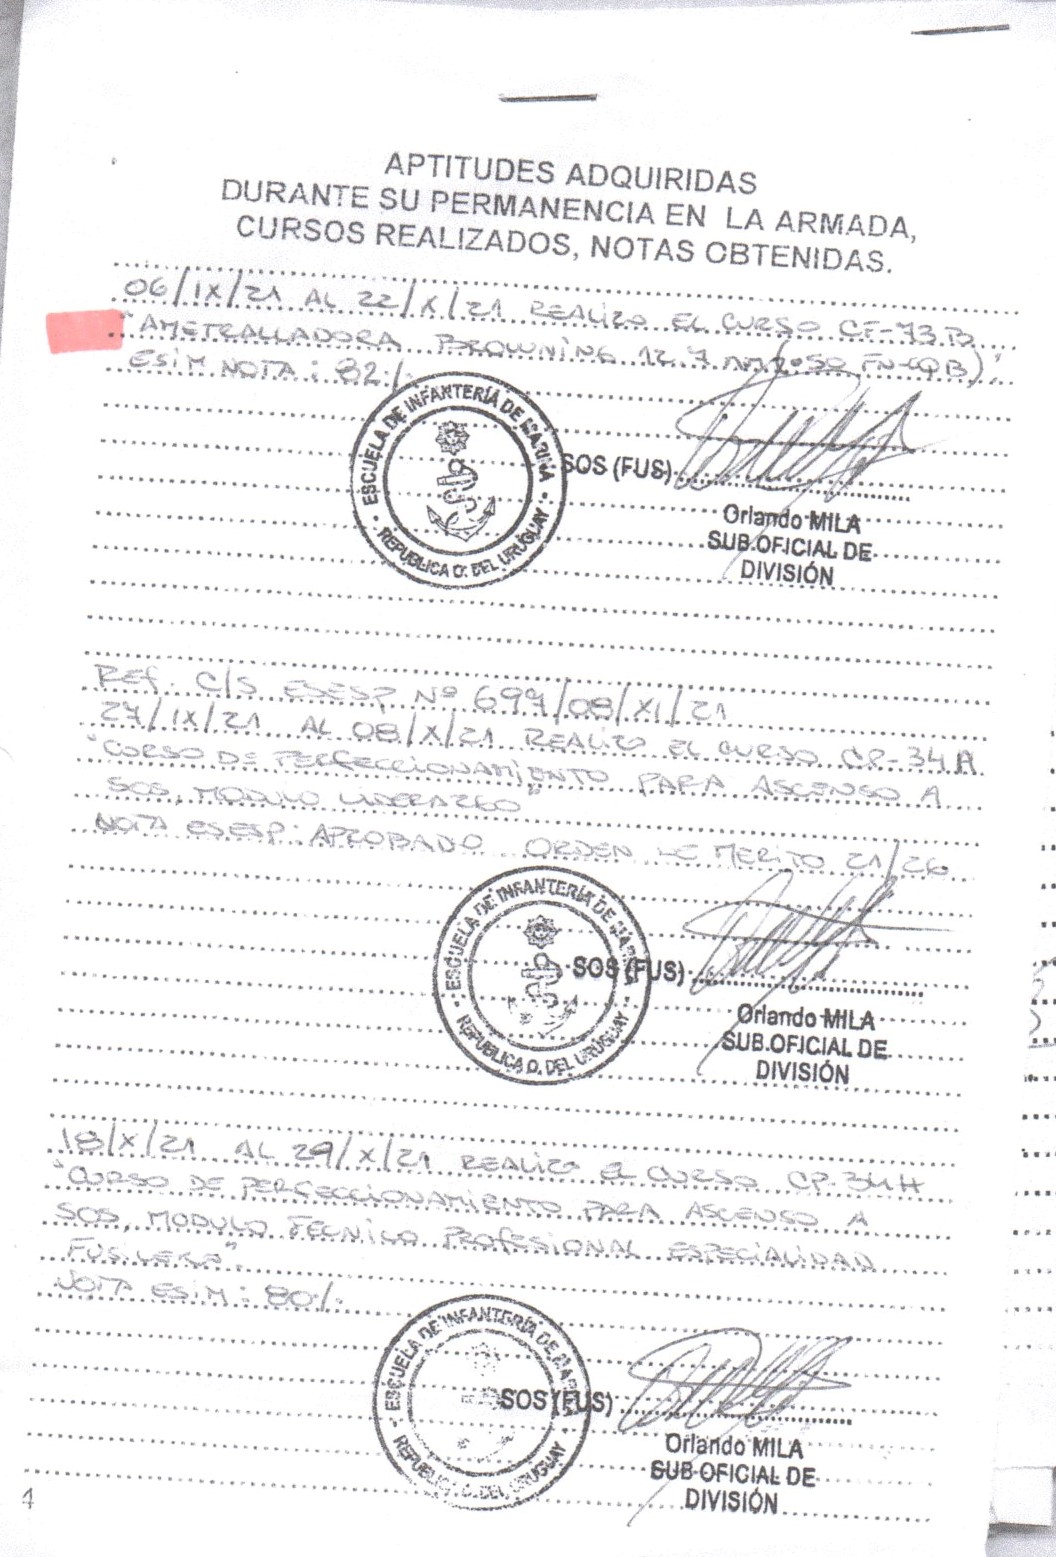 APTITUDES ADQUIRIDAS
DURANTE SU PERMANENCIA EN LA ARMADA,
CURSOS REALIZADOS, NOTAS OBTENIDAS.
06/IX/21 AL 22/X/21 REALIZO EL CURSO CF-73.B
"AMETRALLADORA BROWNING 12.7
ESIM NOTA: 82%
ESCUELA DE INFANTERÍA DE MARINA
REPUBLICA O. DEL URUGUAY
SOS (FUS)
Orlando MILA
SUB.OFICIAL DE
DIVISIÓN
REF. C/S ESESP Nº 697/08/XI/21
27/IX/21 AL 08/X/21 REALIZO EL CURSO CP-34A
"CURSO DE PERFECCIONAMIENTO PARA ASCENSO A
SOS, MODULO LIDERAZGO"
NOTA ESESP: APROBADO ORDEN DE MERITO 21/26
ESCUELA DE INFANTERÍA DE MARINA
REPUBLICA O. DEL URUGUAY
SOS (FUS)
Orlando MILA
SUB.OFICIAL DE
DIVISIÓN
18/X/21 AL 29/X/21 REALIZO EL CURSO CP-34H
"CURSO DE PERFECCIONAMIENTO PARA ASCENSO A
SOS, MODULO TECNICO PROFESIONAL ESPECIALIDAD
FUSILERO".
NOTA ESIM: 80%
ESCUELA DE INFANTERÍA DE MARINA
REPUBLICA O. DEL URUGUAY
SOS (FUS)
Orlando MILA
SUB-OFICIAL DE
DIVISIÓN
4